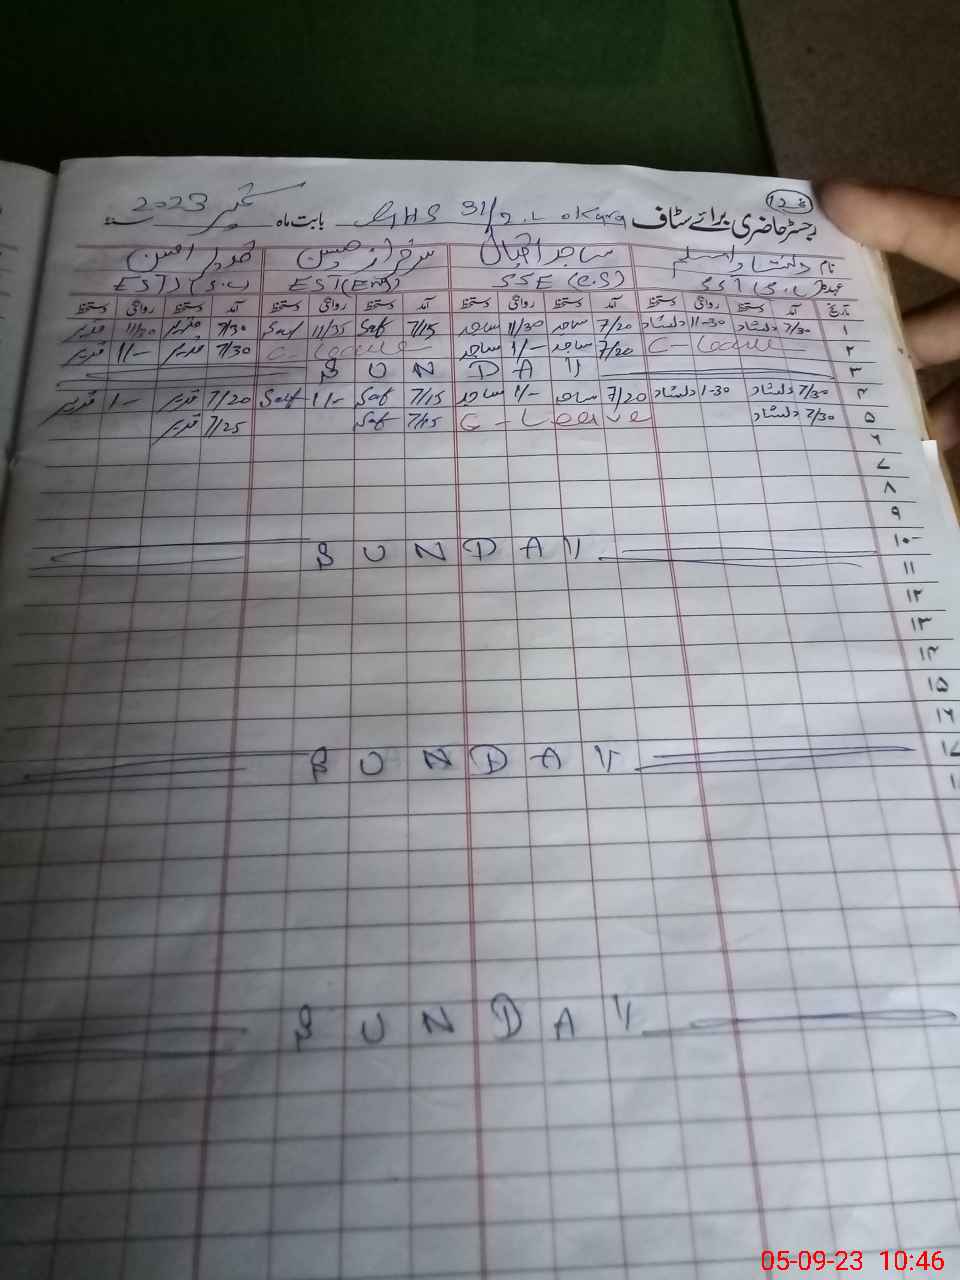 صفحہ 12
رجسٹر حاضری برائے سٹاف GHS 31/2.L okara بابت ماہ ستمبر 2023 سنہ
نام دلشاد اسلم ساجد اقبال سرفراز حسین
عہدہ SST (S.C) SSE (C.S) EST (Eng)
تاریخ آمد دستخط روانگی دستخط آمد دستخط روانگی دستخط آمد دستخط روانگی دستخط آمد دستخط روانگی دستخط
۱ 7/30 دلشاد 11-30 دلشاد 7/20 ساجد 11/30 ساجد 7/15 Saf 11/35 Saf 7/30
۲ C-Leave 7/20 ساجد 1/- ساجد C-Leave 7/30 1/-
۳ SUNDAY
۴ 7/30 دلشاد 1-30 دلشاد 7/20 ساجد 1/- ساجد 7/15 Saf 1/- Saf 7/20 1-
۵ 7/30 دلشاد C-Leave 7/15 Saf 7/25
۶
۷
۸
۹
۱۰ SUNDAY
۱۱
۱۲
۱۳
۱۴
۱۵
۱۶
۱۷ SUNDAY
SUNDAY
05-09-23 10:46